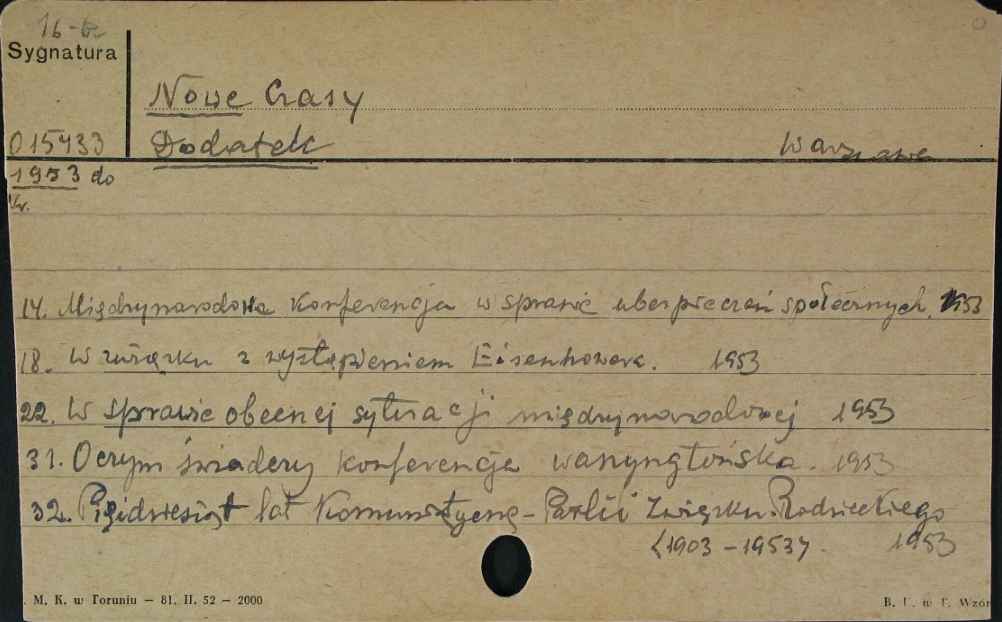 16-b
Sygnatura
Nowe Czasy
015433 Dodatek Warszawa
1953 do
14. Międzynarodowa konferencja w sprawie ubezpieczeń społecznych. 1953
18. W związku z wystąpieniem Eisenhowera. 1953
22. W sprawie obecnej sytuacji międzynarodowej 1953
31. O czym świadczy konferencja waszyngtońska. 1953
32. Pięćdziesiąt lat Komunistycznej Partii Związku Radzieckiego
(1903-1953). 1953
M. K. w Toruniu — 81. II. 52 — 2000